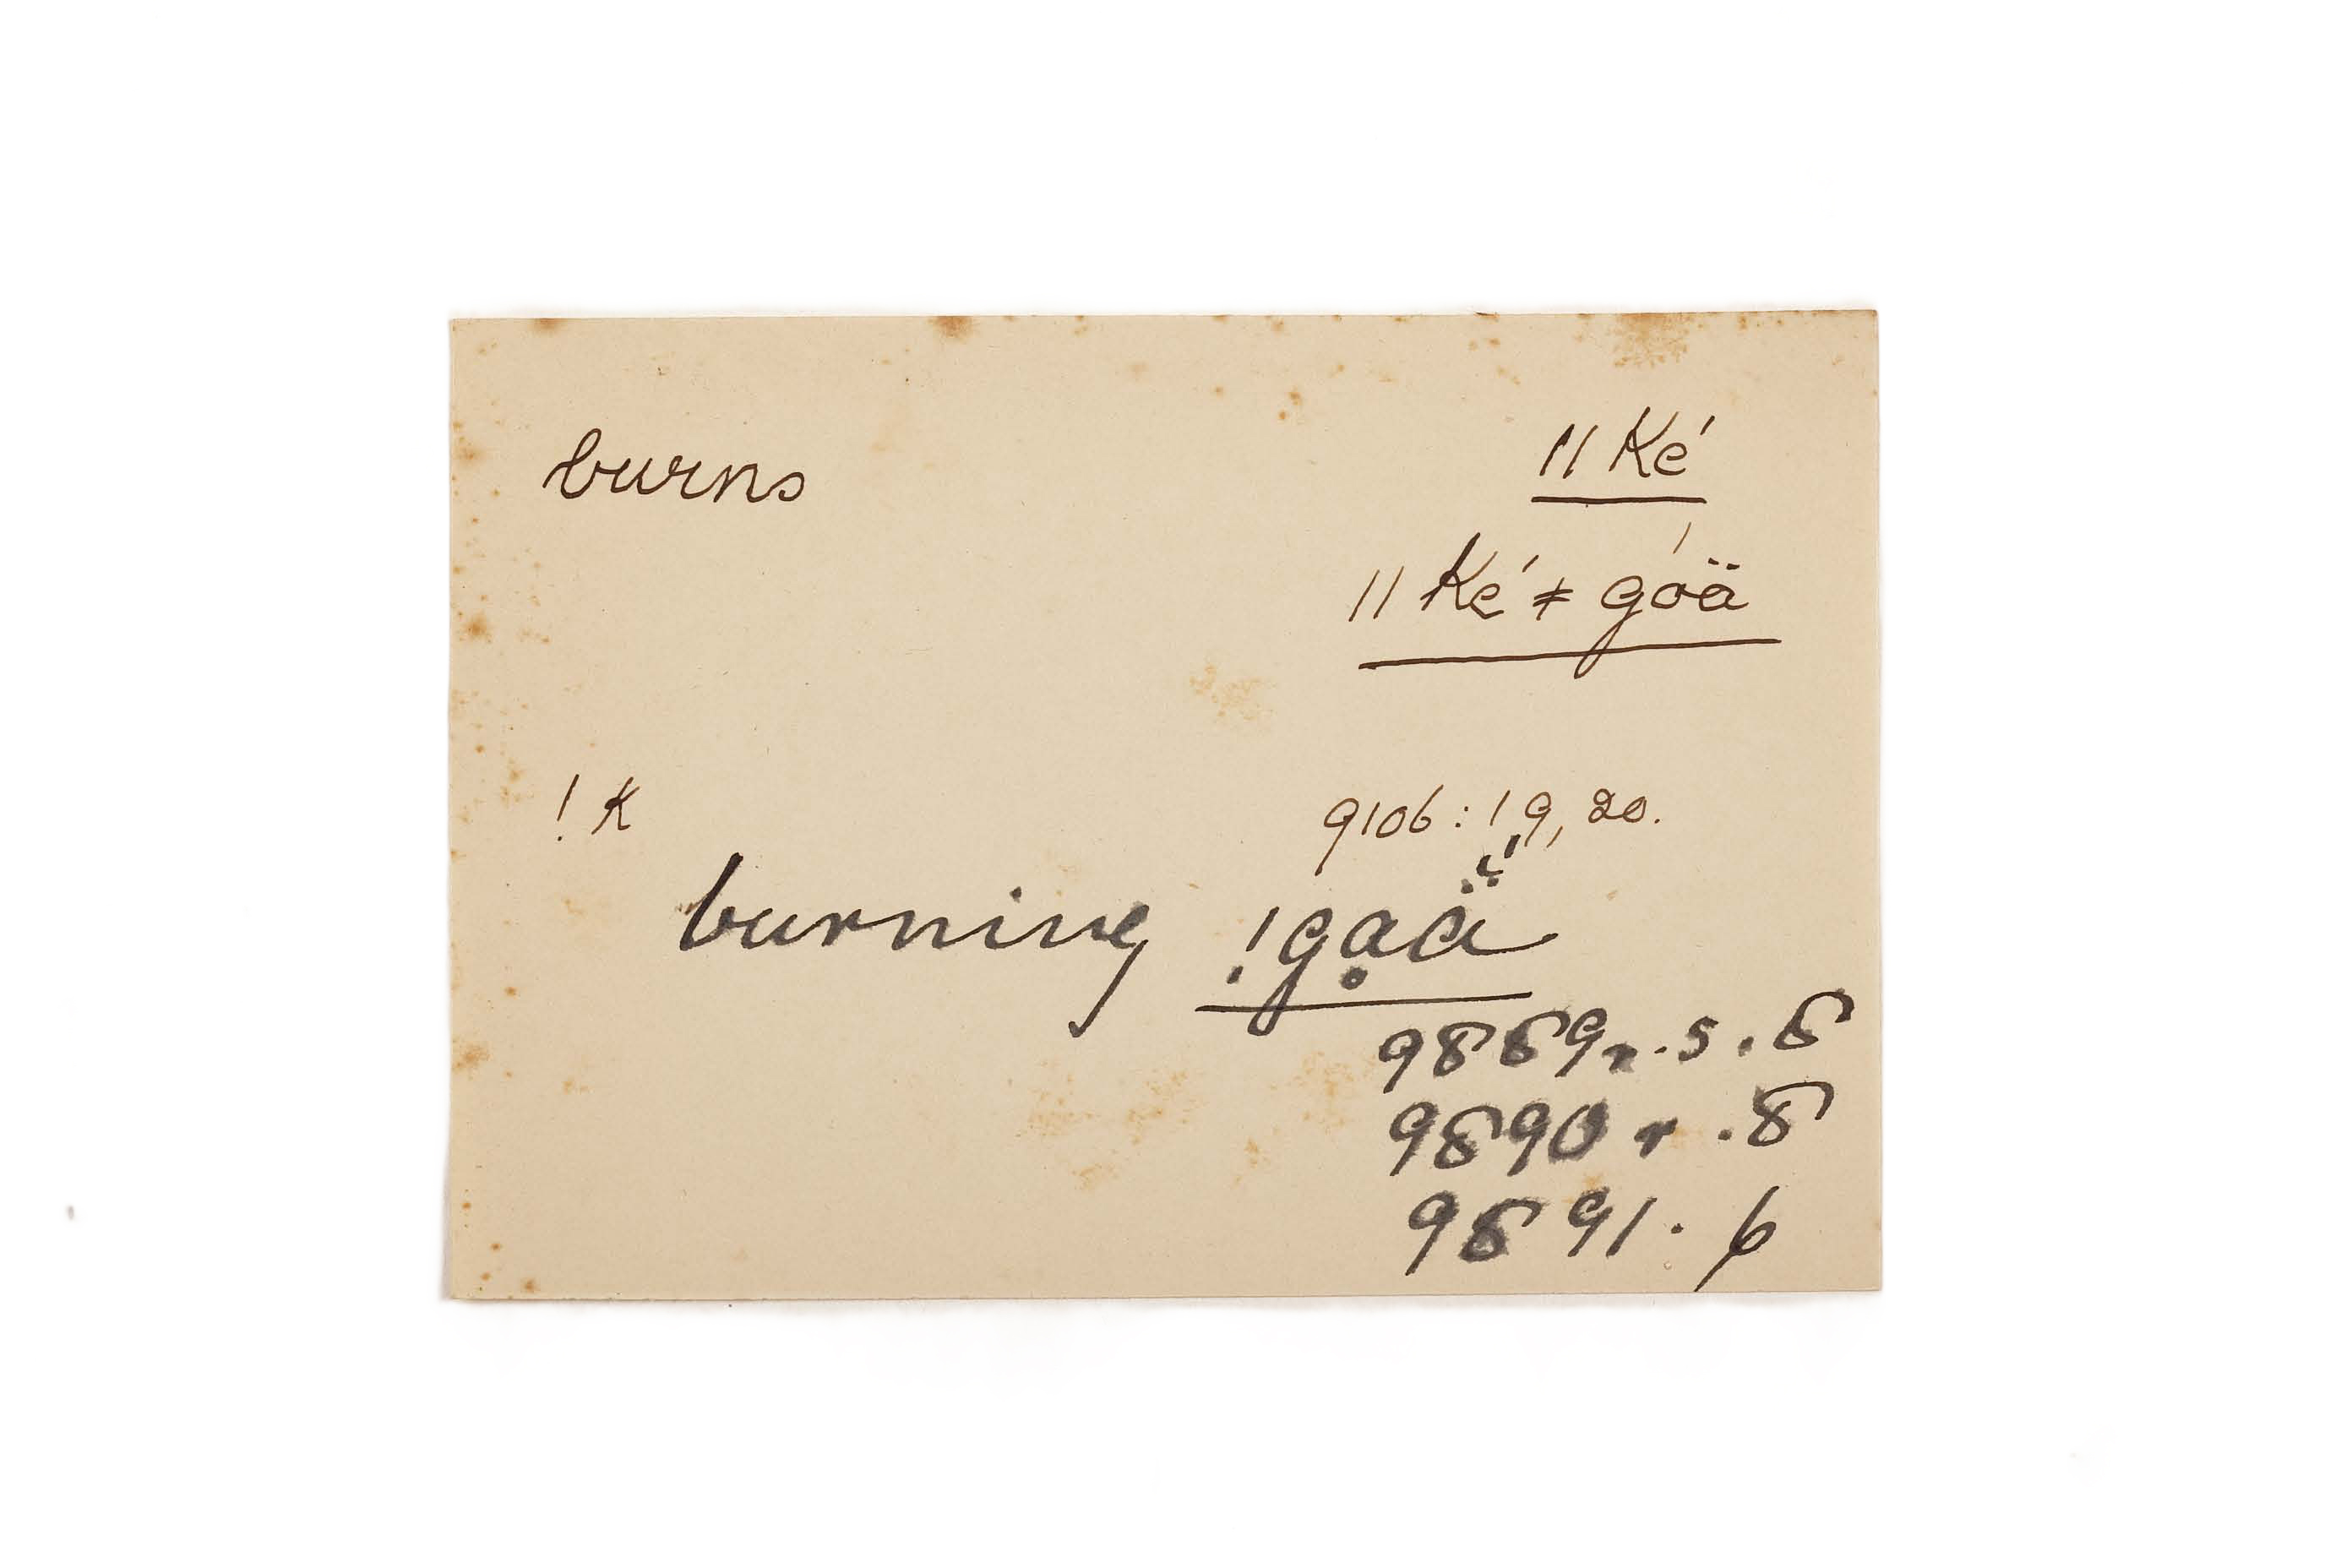 burns ǁKé
ǁKé ǂ góä
!K 9106 : 19, 20.
burning !gạ̊ä̆́
9889 r. s. 8
9890 r. 8
9891. 6